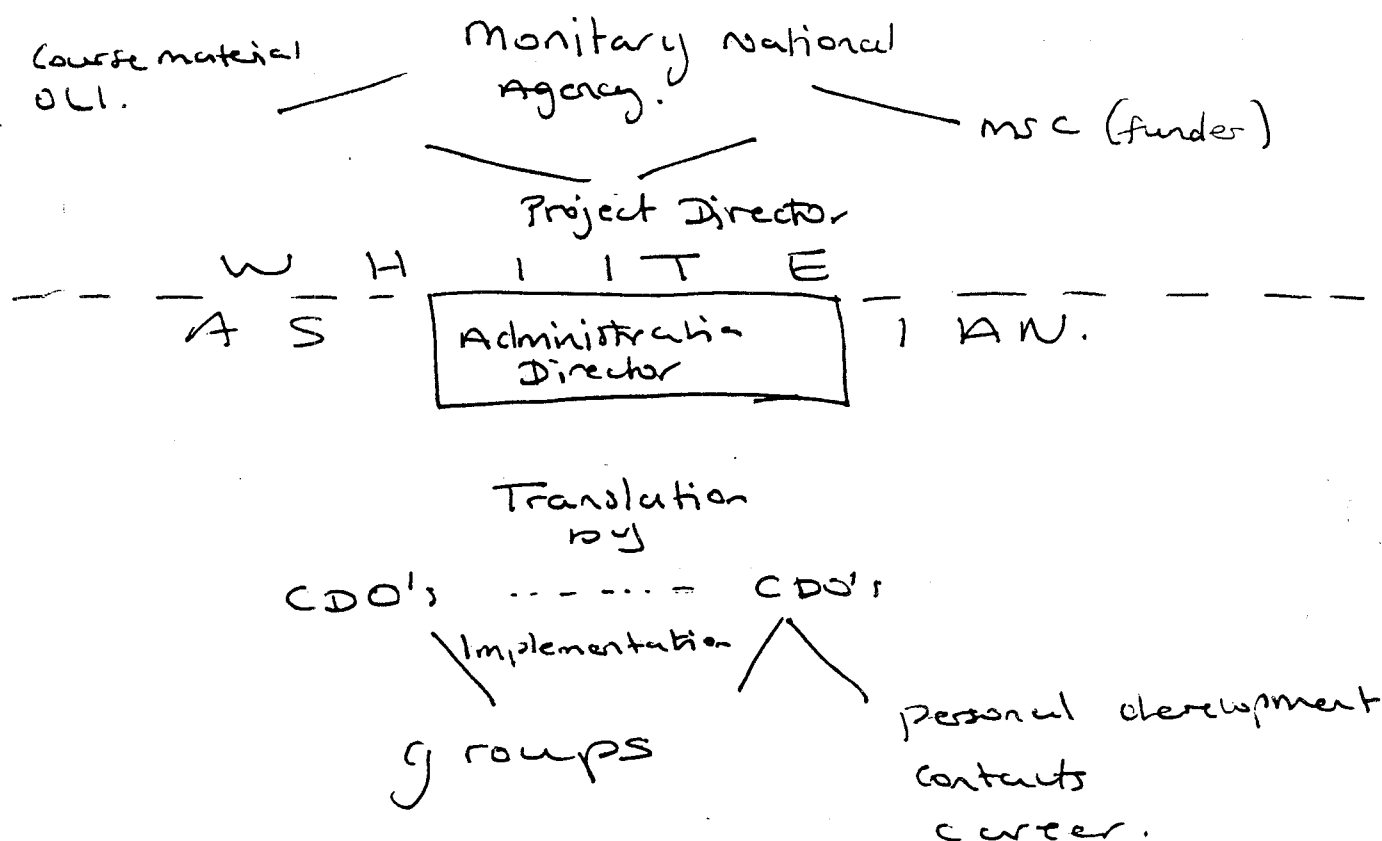 Course material
OLI.
Monitary National
Agency.
MSC (funder)
Project Director
W H I I T E
A S I AN.
Administratin
Director
Translation
by
CDO's ------- CDO's
Implementation
groups
personal development
contacts
career.